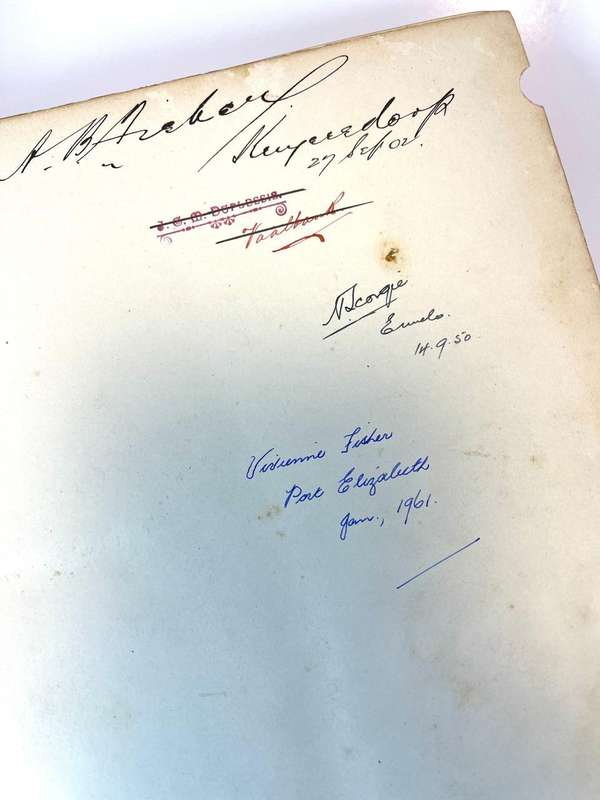 A. B.
27 Sep 02.
J. C. M. DUPLESSIS.
Vaalbank
Ermelo.
14.9.50
Vivienne Fisher
Port Elizabeth
Jan., 1961.